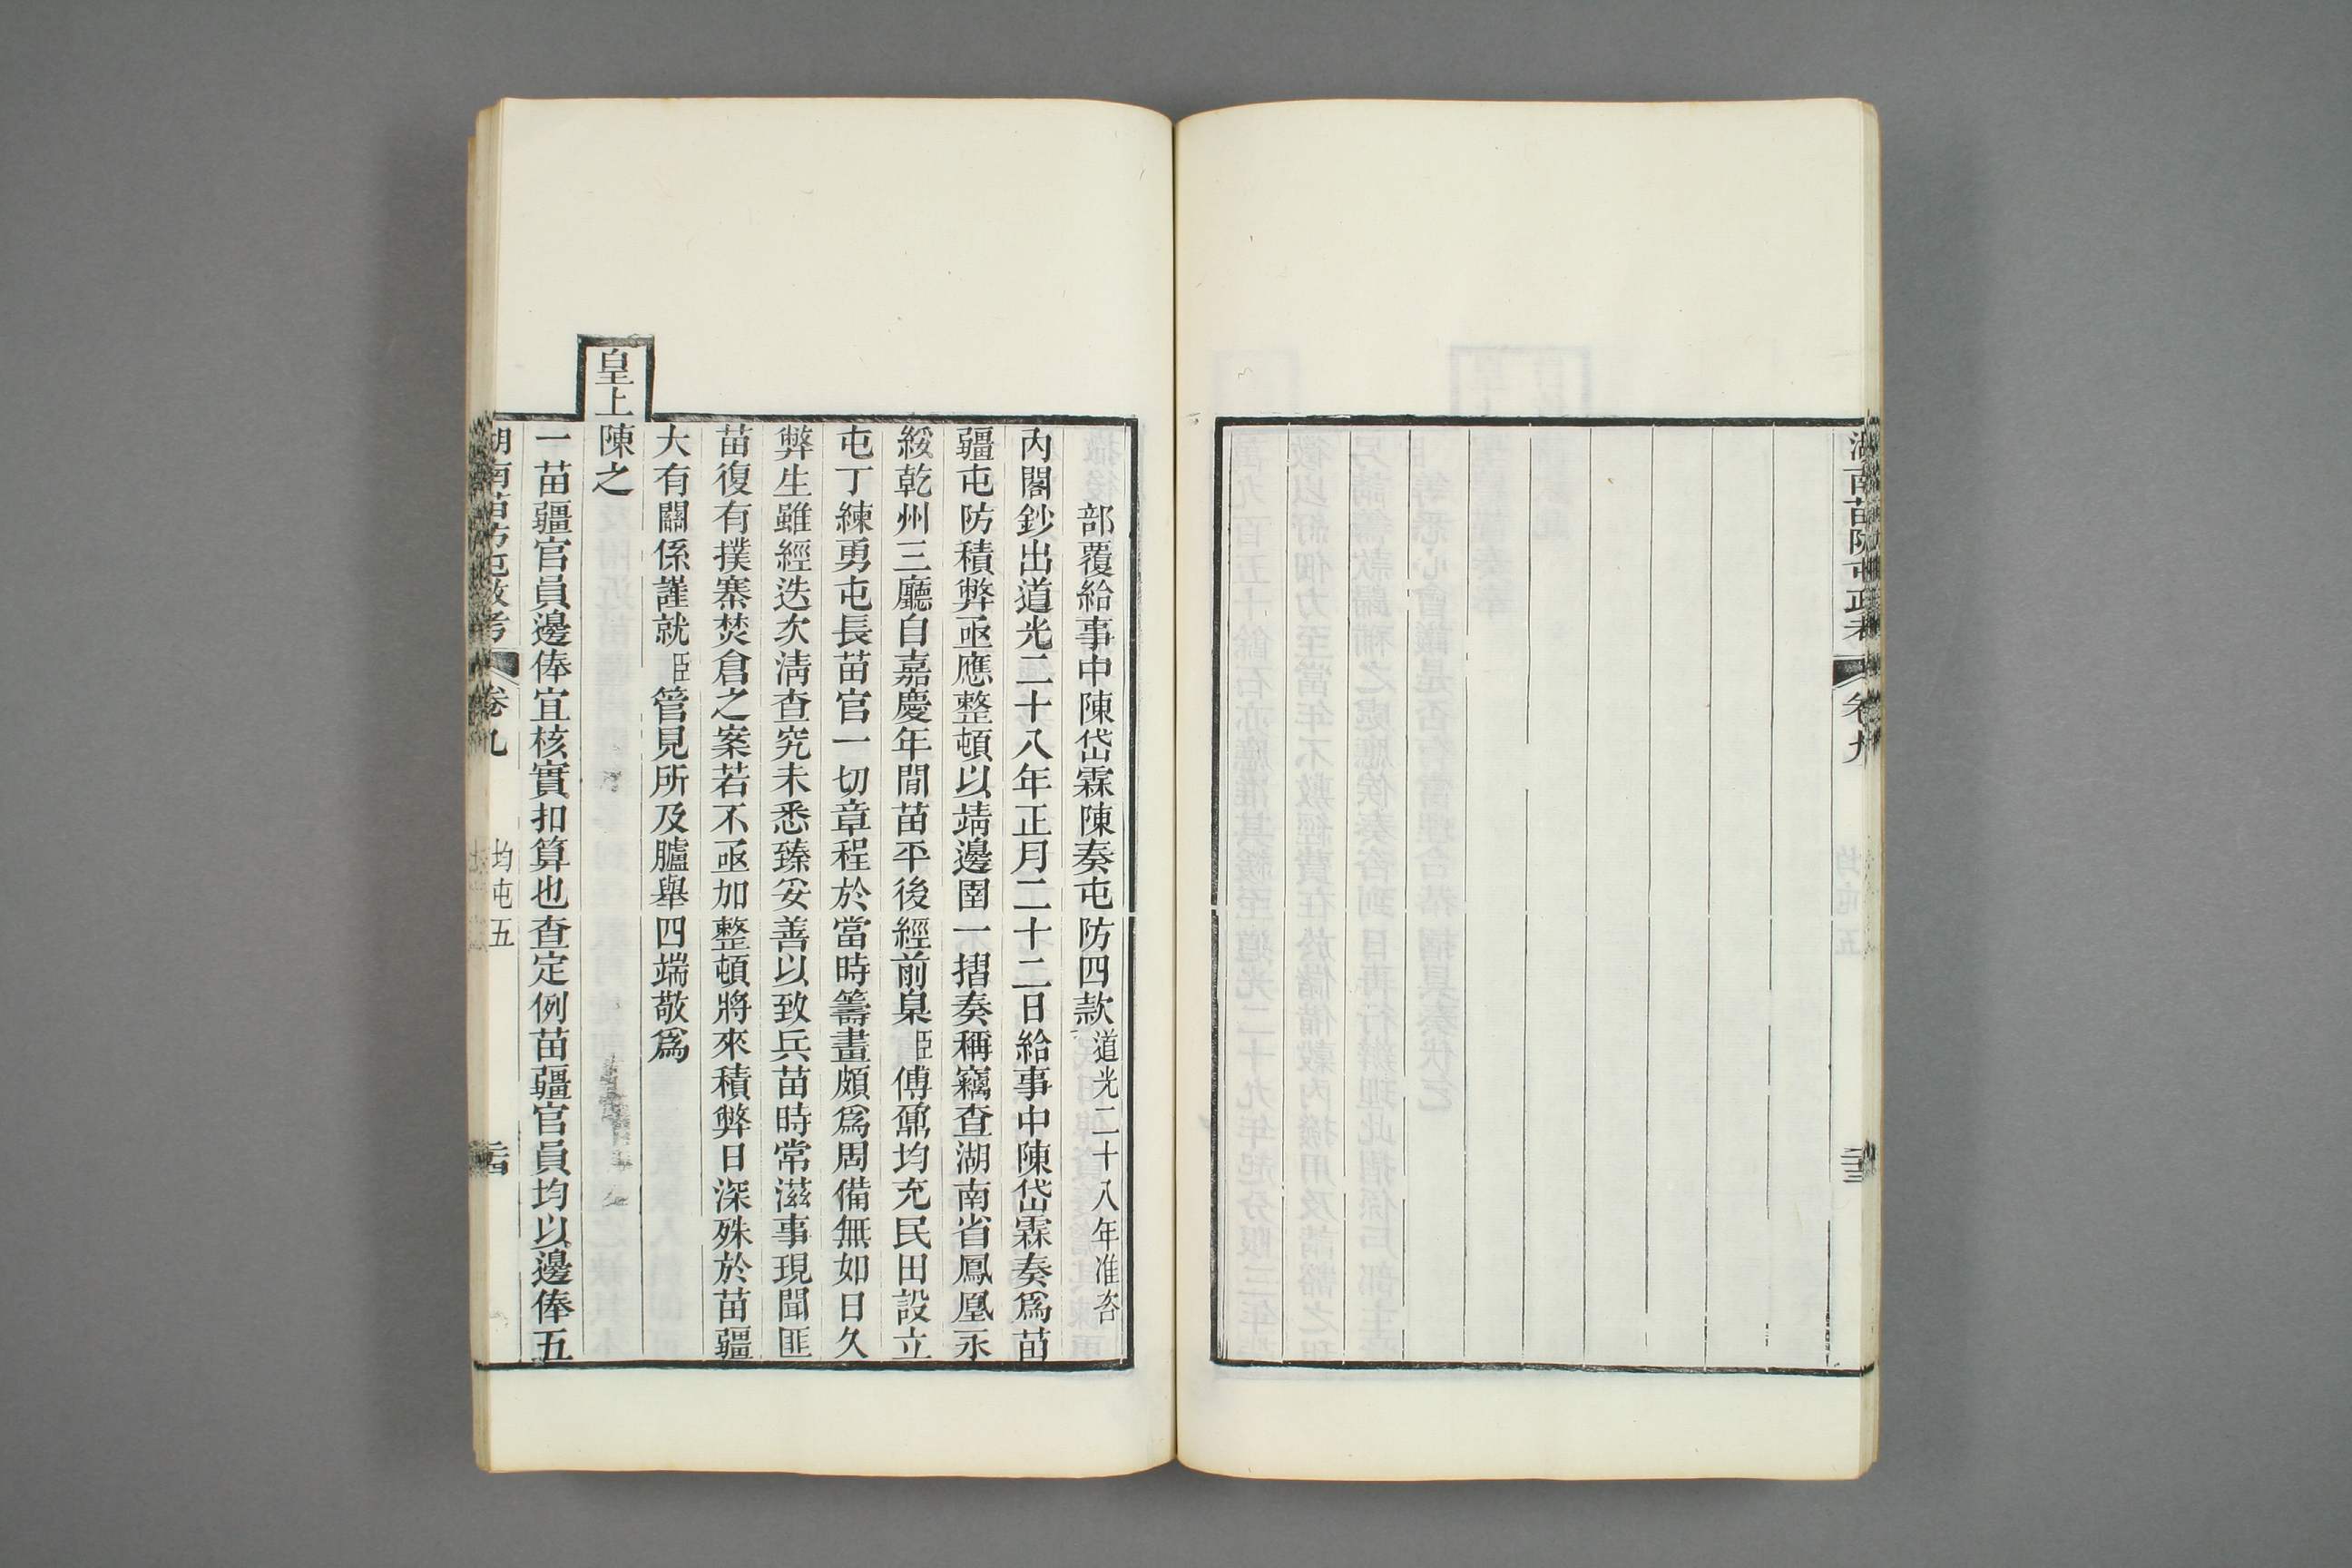 湖南苗防屯政考 卷九 二十三
部覆給事中陳岱霖陳奏屯防四款道光二十八年准咨
內閣鈔出道光二十八年正月二十二日給事中陳岱霖奏爲苗
疆屯防積弊亟應整頓以靖邊圉一摺奏稱竊查湖南省鳳凰永
綏乾州三廳自嘉慶年間苗平後經前臬臣傅鼐均充民田設立
屯丁練勇屯長苗官一切章程於當時籌畫頗爲周備無如日久
弊生雖經迭次淸查究未悉臻妥善以致兵苗時常滋事現聞匪
苗復有撲寨焚倉之案若不亟加整頓將來積弊日深殊於苗疆
大有關係謹就臣管見所及臚舉四端敬爲
皇上陳之
一苗疆官員邊俸宜核實扣算也查定例苗疆官員均以邊俸五
湖南苗防屯政考 卷九 均屯五 二十四